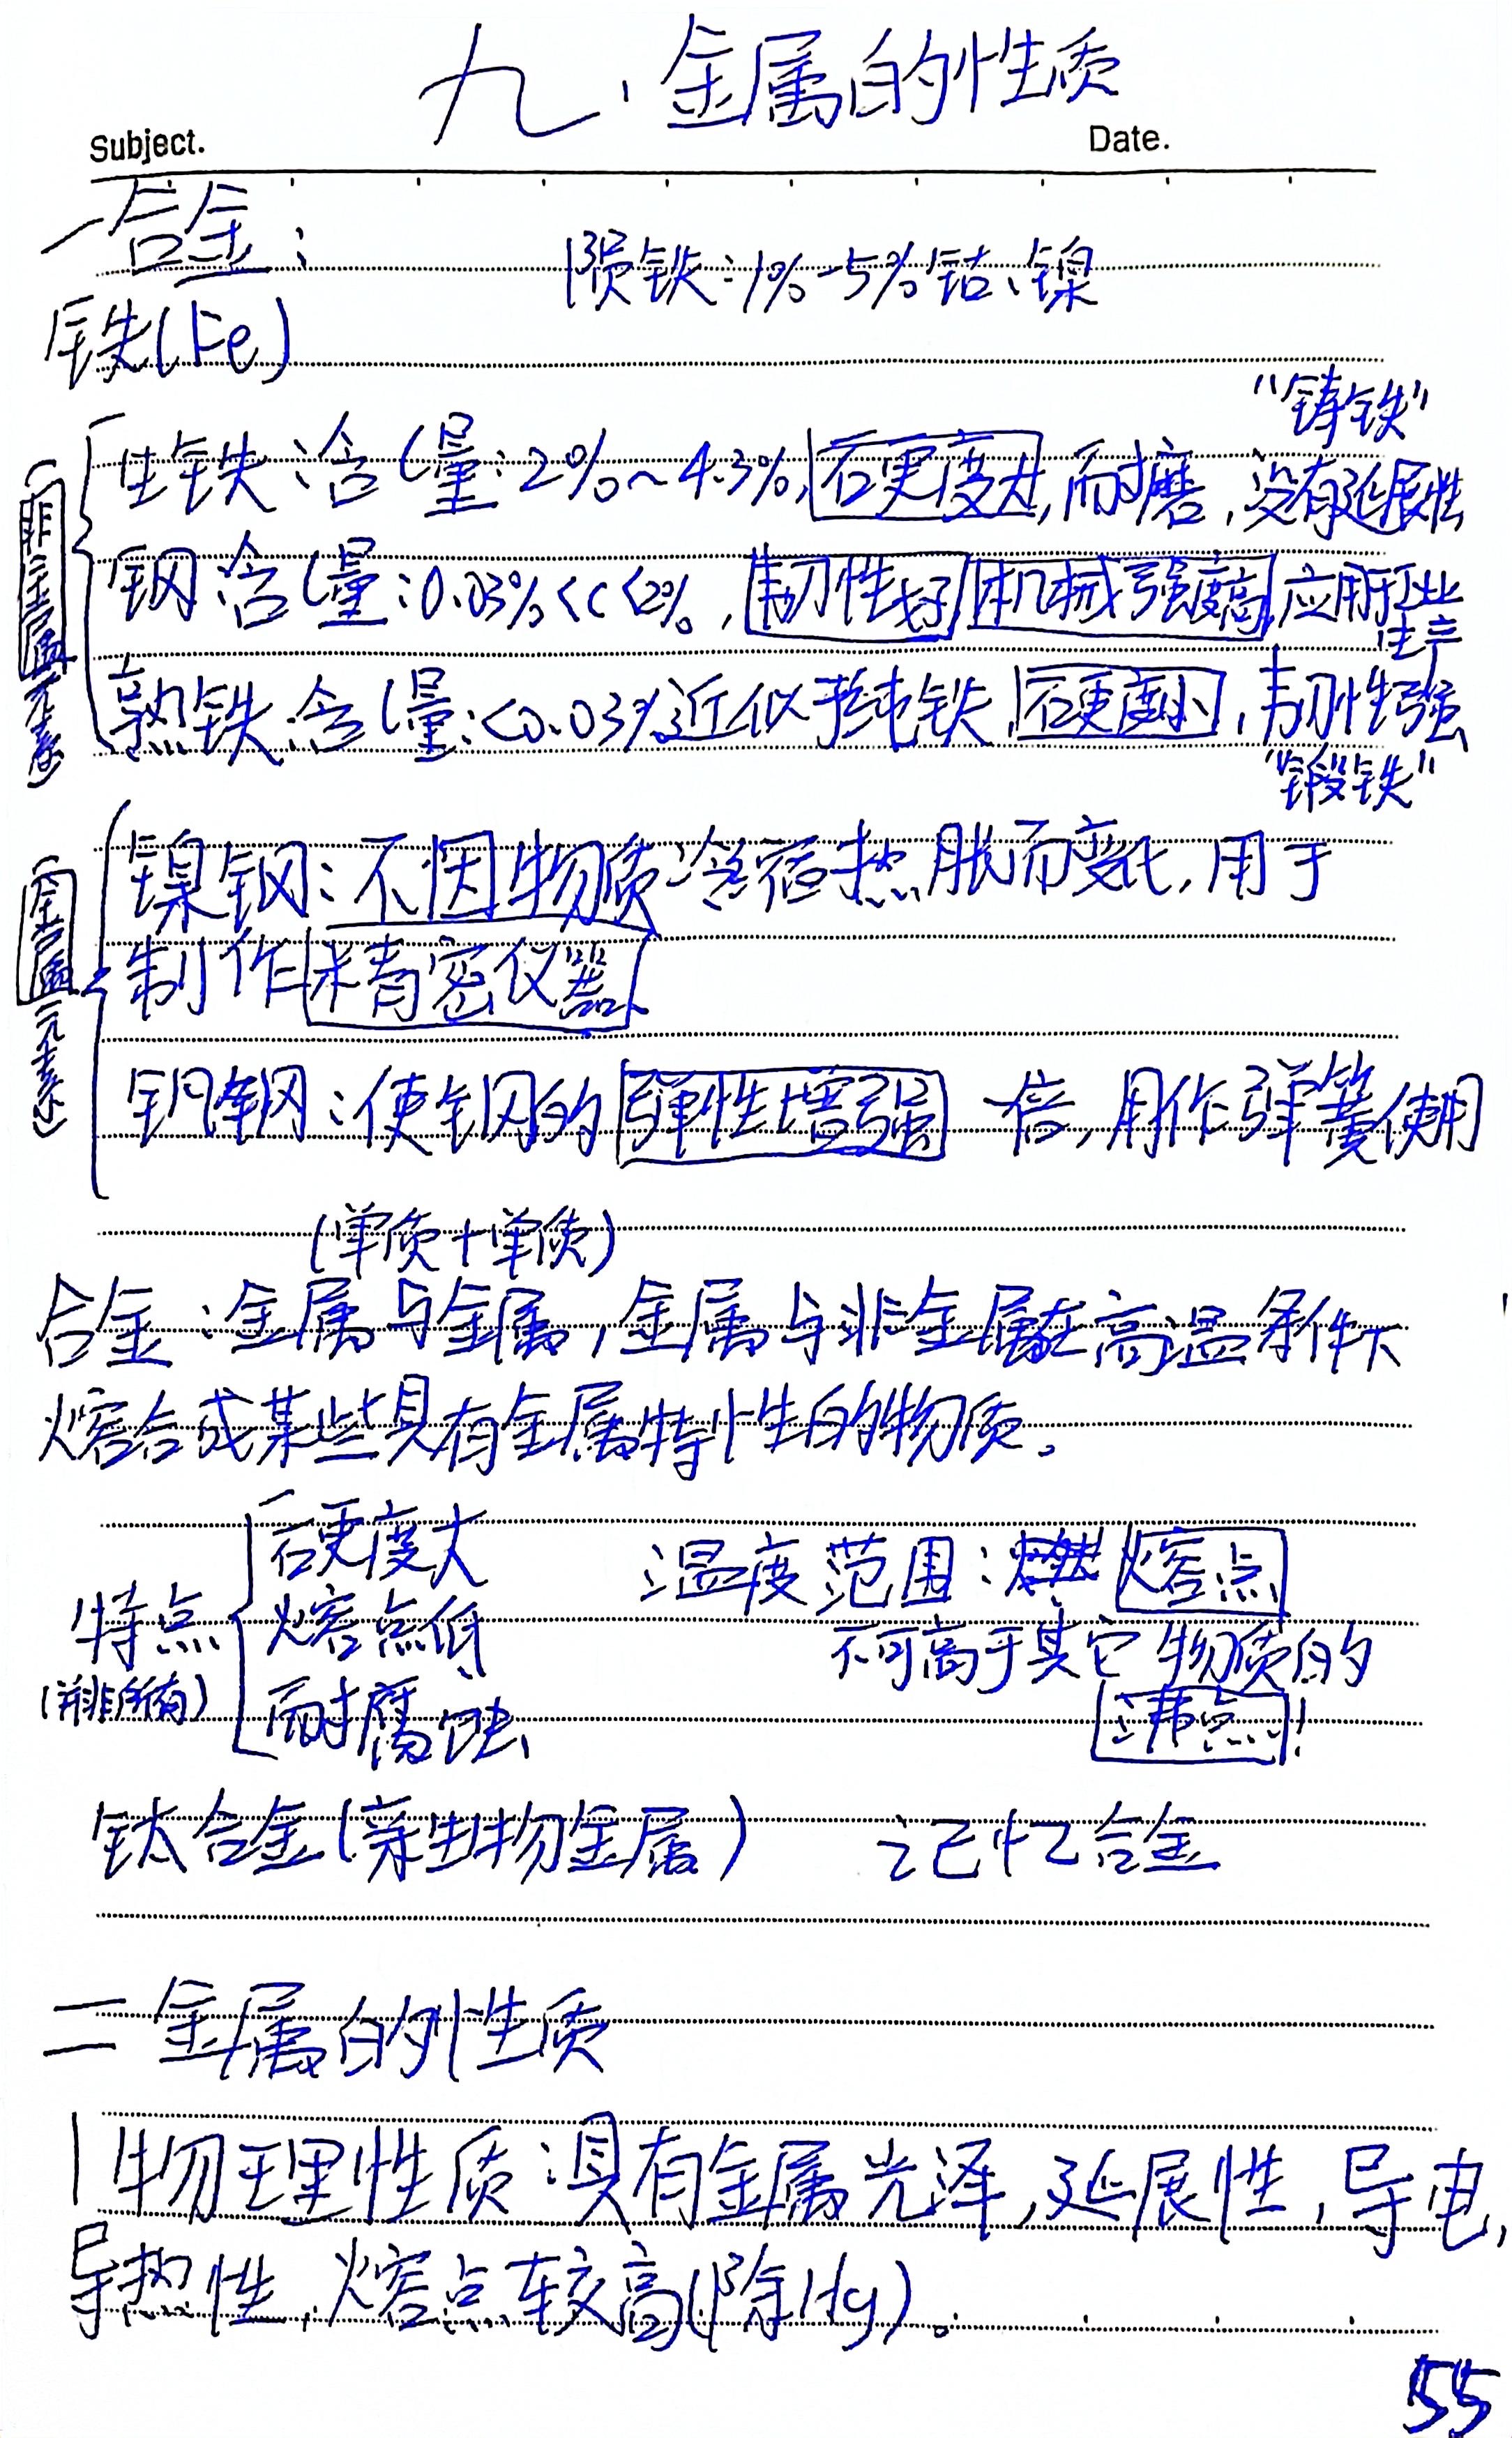 九、金属的性质
Subject.
Date.
一合金：
陨铁：1%-5%钴、镍
铁(Fe)
"铸铁"
生铁：含C量：2%~4.3%，硬度大，耐磨，没有延展性
钢：含C量：0.03%<C<2%，韧性好，机械强度高，应用于工业
生产
熟铁：含C量：<0.03%近似于纯铁，硬度小，韧性强
"锻铁"
非金属元素
镍钢：不因物质冷缩热胀而变化，用于
制作精密仪器
金属元素
钒钢：使钢的弹性增强一倍，用作弹簧使用
(单质+单质)
合金：金属与金属，金属与非金属在高温条件下
熔合成某些具有金属特性的物质。
特点
(并非所有)
硬度大
熔点低
耐腐蚀
温度范围：熔点
不可高于其它物质的
沸点！
钛合金(亲生物金属)
记忆合金
二金属的性质
1物理性质：具有金属光泽，延展性，导电，
导热性，熔点较高(除Hg)。
55